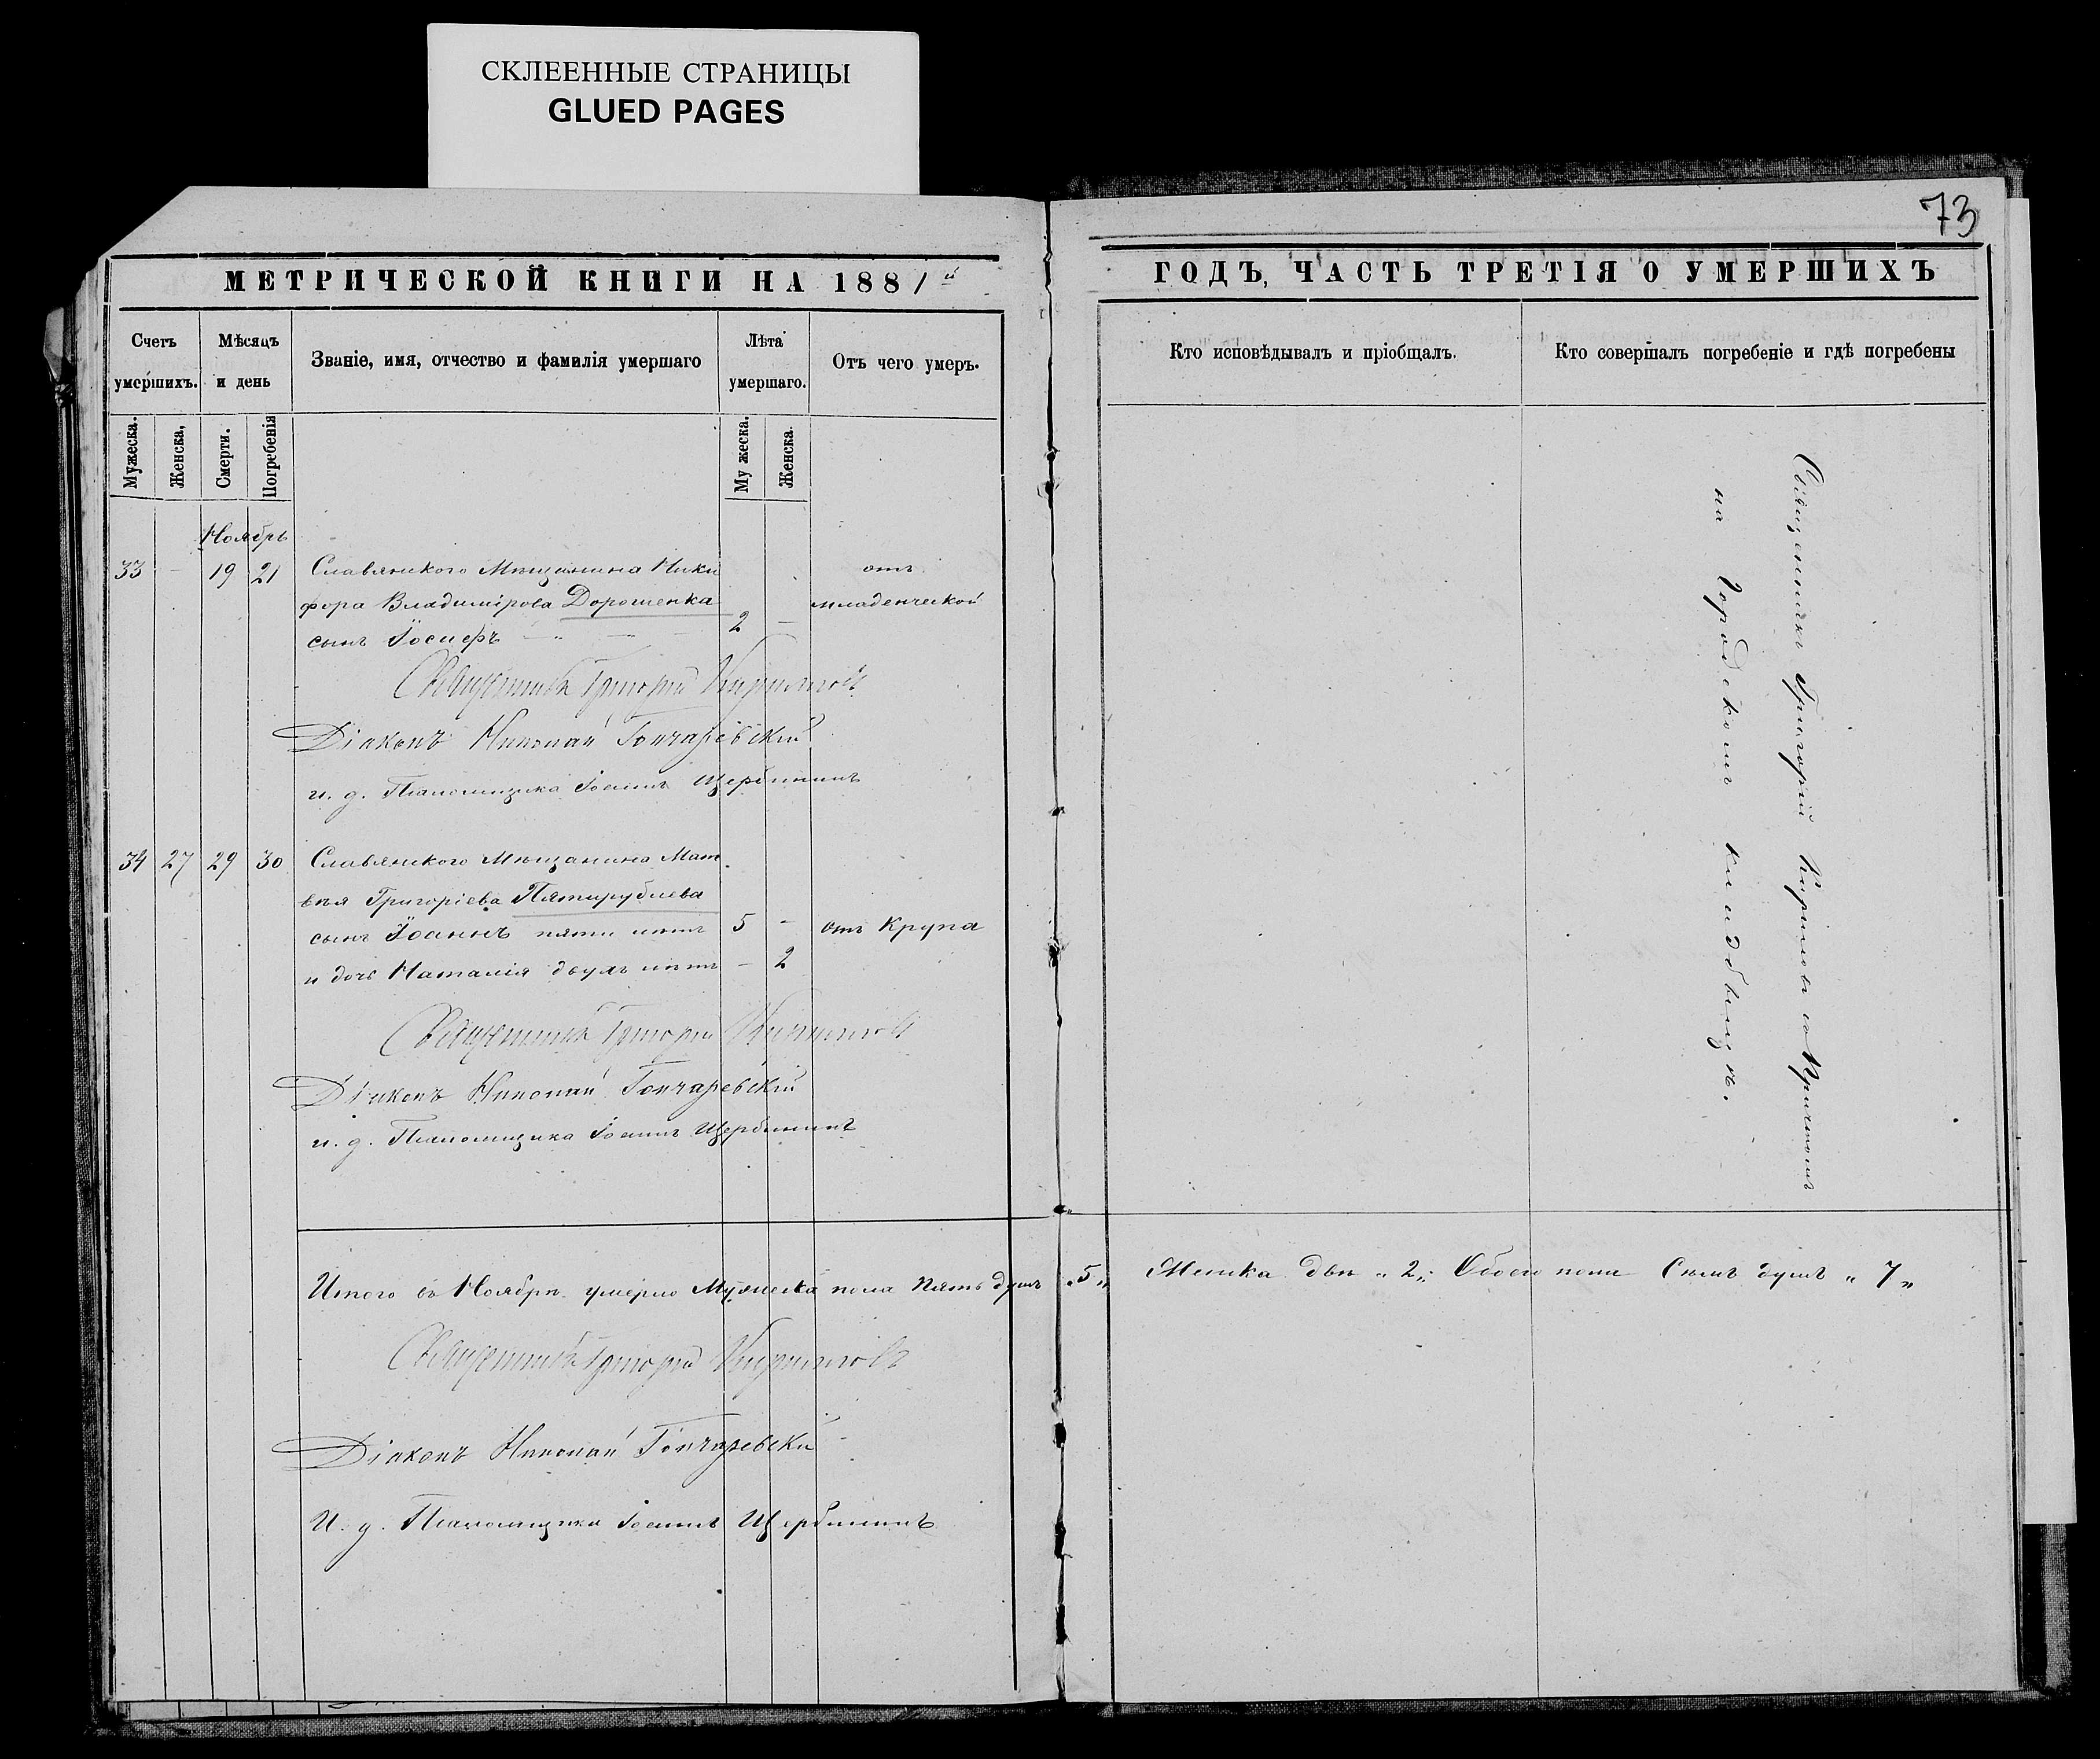 СКЛЕЕННЫЕ СТРАНИЦЫ
GLUED PAGES
73
МЕТРИЧЕСКОЙ КНИГИ НА 1881й
Счетъ умершихъ.
Мѣсяцъ и день
Званіе, имя, отчество и фамилія умершаго
Лѣта умершаго.
Отъ чего умеръ.
Мужеска.
Женска,
Смерти.
Погребенія
Му жеска.
Женска.
Ноябрь
33 - 19 21 Славянскаго Мѣщанина Ники
фора Владимірова Дорошенка
сынъ Іосифъ
2 -
отъ
младенческой
Священникъ Григорій Кириловъ
Діаконъ Николай Гончаревскій
и. д. Псаломщика Іоаннъ Щербининъ
34 27 29 30 Славянскаго Мѣщанина Мат
вѣя Григоріева Пятирублева
сынъ Іоаннъ пяти лѣтъ 5 - отъ Крупа
и дочь Наталія двухъ лѣтъ - 2
Священникъ Григорій Кириловъ
Діаконъ Николай Гончаревскій
и. д. Псаломщика Іоаннъ Щербининъ
Итого въ Ноябрѣ умерло Мужеска пола Пять душъ „5„
Священникъ Григорій Кириловъ
Діаконъ Николай Гончаревскій
И. д. Псаломщика Іоаннъ Щербининъ
ГОДЪ, ЧАСТЬ ТРЕТІЯ О УМЕРШИХЪ
Кто исповѣдывалъ и пріобщалъ.
Кто совершалъ погребеніе и гдѣ погребены
Священникъ Григорій Кириловъ съ Причтомъ
на Городскомъ кладбищѣ.
Женска двѣ „2„ Обоего пола Семь душъ „7„